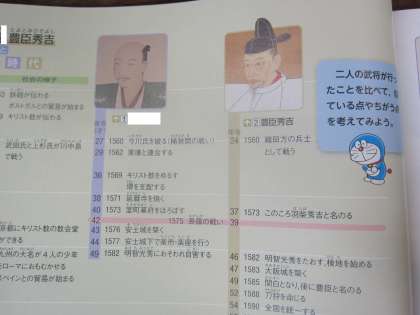 とよとみひでよし
豊臣秀吉
と
時代
社会の様子
43 鉄砲が伝わる
ポルトガルとの貿易が始まる
49 キリスト教が伝わる
武田氏と上杉氏が川中島
で戦う
京都にキリスト教の教会堂
ができる
九州の大名が4人の少年
をローマにおもむかせる
スペインとの貿易が始まる
↑1
27 1560 今川氏を破る(桶狭間の戦い)
29 1562 家康と連合する
36 1569 キリスト教をゆるす
堺を支配する
38 1571 延暦寺を焼く
40 1573 室町幕府をほろぼす
42 1575 長篠の戦い 39
43 1576 安土城を築く
44 1577 安土城下で楽市・楽座を行う
49 1582 明智光秀におそわれ自害する
↑2 豊臣秀吉
24 1560 織田方の兵士
として戦う
37 1573 このころ羽柴秀吉と名のる
46 1582 明智光秀をたおす、検地を始める
47 1583 大阪城を築く
49 1585 関白となり、後に豊臣と名のる
52 1588 刀狩を命じる
54 1590 全国を統一する
二人の武将が行っ
たことを比べて、似
ている点やちがう点
を考えてみよう。